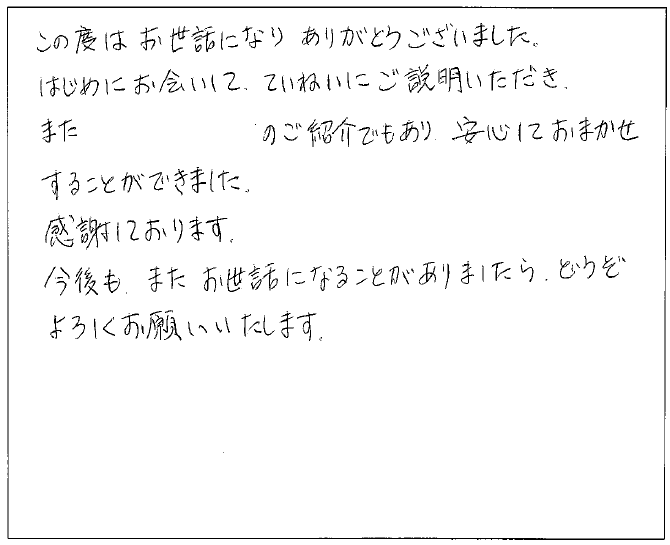 この度は お世話になり ありがとうございました。
はじめにお会いして、ていねいにご説明いただき、
また のご紹介でもあり 安心しておまかせ
することができました。
感謝しております。
今後も、また お世話になることがありましたら、どうぞ
よろしくお願いいたします。